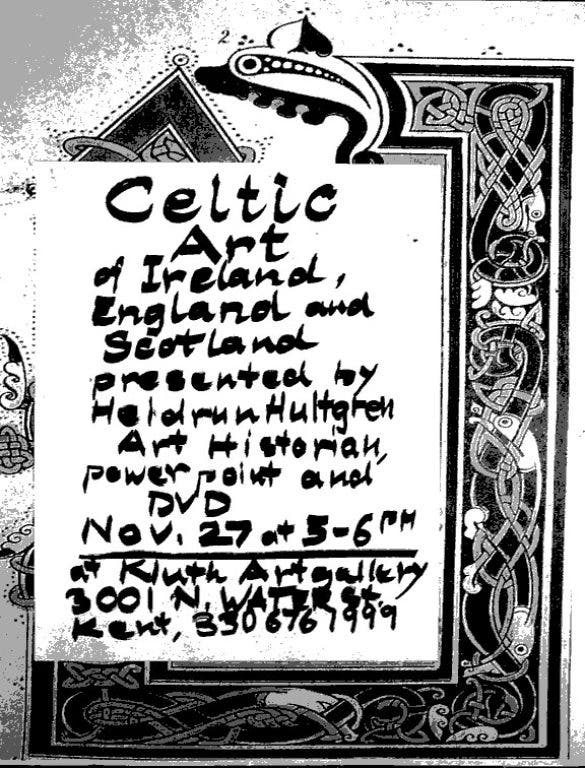 2
Celtic
Art
of Ireland,
England and
Scotland
presented by
Heidrun Hultgren
Art Historian,
powerpoint and
DVD
Nov. 27 at 5-6 PM
at Kluth Artgallery
3001 N. WATER St.
Kent, 330 676 1999